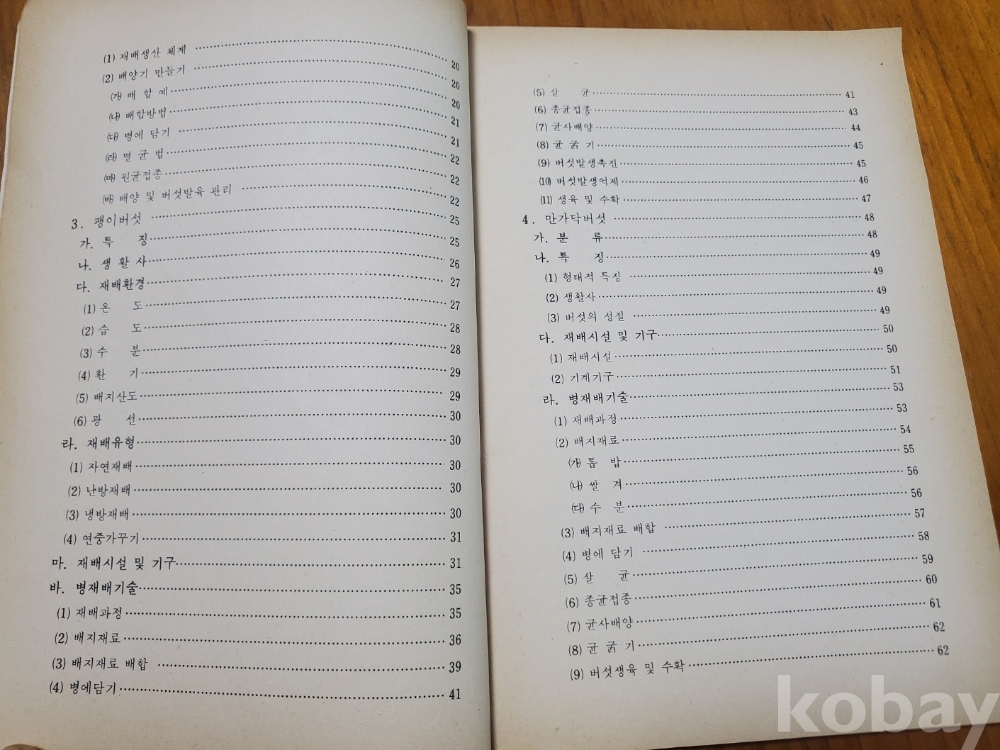 (1) 재배생산 체계 20
(2) 배양기 만들기 20
㈎ 배 합 예 20
㈏ 배합방법 21
㈐ 병에 담기 21
㈑ 멸 균 법 22
㈒ 원균접종 22
㈓ 배양 및 버섯발육 관리 22
3. 팽이버섯 25
가. 특 징 25
나. 생 활 사 26
다. 재배환경 27
(1) 온 도 27
(2) 습 도 28
(3) 수 분 28
(4) 환 기 29
(5) 배지산도 29
(6) 광 선 30
라. 재배유형 30
(1) 자연재배 30
(2) 난방재배 30
(3) 냉방재배 30
(4) 연중가꾸기 31
마. 재배시설 및 기구 31
바. 병재배기술 35
(1) 재배과정 35
(2) 배지재료 36
(3) 배지재료 배합 39
(4) 병에담기 41
(5) 살 균 41
(6) 종균접종 43
(7) 균사배양 44
(8) 균 긁 기 45
(9) 버섯발생촉진 45
(10) 버섯발생억제 46
(11) 생육 및 수확 47
4. 만가닥버섯 48
가. 분 류 48
나. 특 징 49
(1) 형태적 특징 49
(2) 생활사 49
(3) 버섯의 성질 49
다. 재배시설 및 기구 50
(1) 재배시설 50
(2) 기계기구 51
라. 병재배기술 53
(1) 재배과정 53
(2) 배지재료 54
㈎ 톱 밥 55
㈏ 쌀 겨 56
㈐ 수 분 56
(3) 배지재료 배합 57
(4) 병에 담기 58
(5) 살 균 59
(6) 종균접종 60
(7) 균사배양 61
(8) 균 긁 기 62
(9) 버섯생육 및 수확 62
kobay